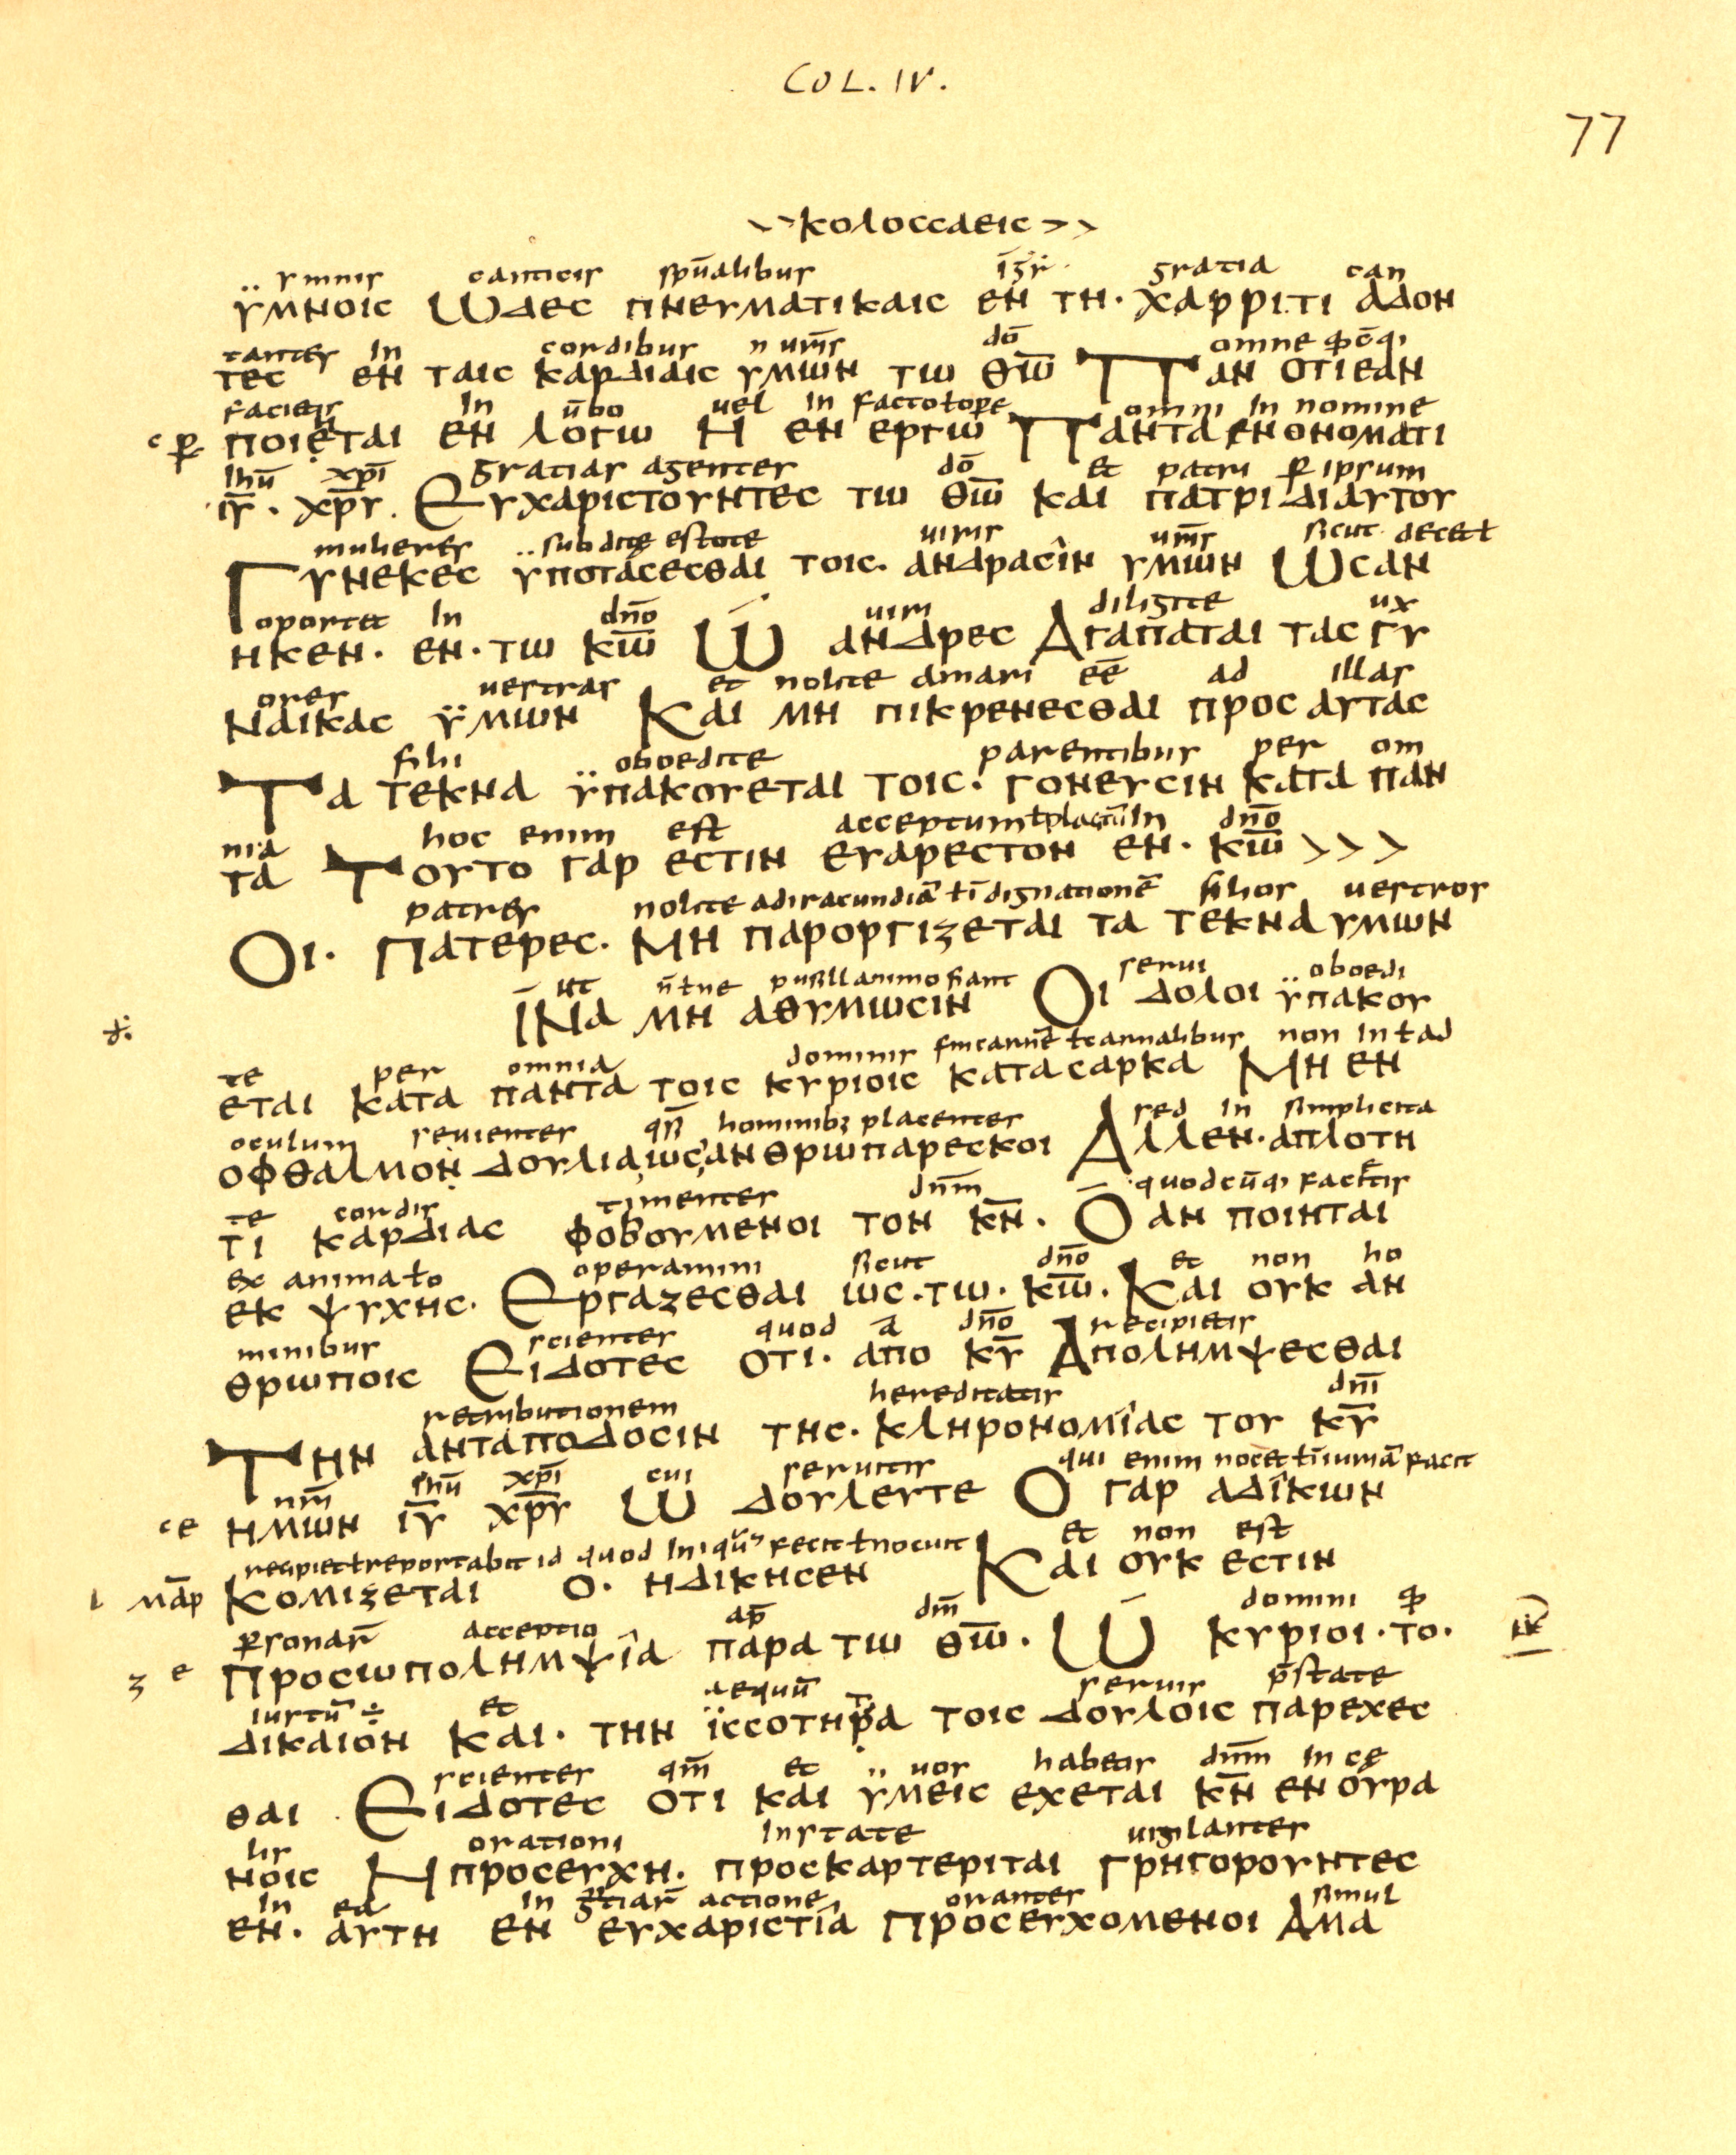 COL. IV.
77
κολοσσαεις
ymnis canticis spūalibus gratia can
υμνοις ωδες πνευματικαις εν τη· χαρριτι αδον
tantes in cordibus ums̄ dō omne
τες εν ταις καρδιαις υμων τω θω̄ Παν οτιεαν
facietis in ūbo uel in facto
ποιεται εν λογω Η εν εργω Παντα εν ονοματι
ihū xpī gratias agentes dō et patri p̱ ipsum
ιῡ· χρ̄υ. Ευχαριστουντες τω θω̄ και πατρι διαυτου
mulieres subdite estote uiris ums̄ sicut decet
Γυνεκες υποτασεσθαι τοις· ανδρασιν υμων Ωσαν
oportet in dnō uiri diligite ux
ηκεν· εν·τω κω̄ Ω̄ ανδρες Αγαπαται τας γυ
ores uestras et nolite amari eē ad illas
Ναικας ϋμων Και μη πικρενεσθαι προς αυτας
filii oboedite parentibus per om
Τα τεκνα ϋπακουεται τοις· γονευσιν κατα παν
nia hoc enim est acceptum ł placitū in dnō
τα Τουτο γαρ εστιν ευαρεστον εν· κω̄ >>>
patres nolite ad iracundiā ł īdignationē filios uestros
Οι· Πατερες· Μη παροργιζεται τα τεκνα υμων
ut n̄ ł ne pusillanimo fiant serui oboedi
ῙΝα μη αθυμωσιν Οι δολοι ϋπακου
te per omnia dominis carnalibus non in ł ad
εται κατα παντα τοις κυριοις κατα σαρκα Μη εν
oculum seuientes qs̄ı hominibꝫ placentes sed in simplicita
οφθαλμον δουλια ωσανθρωπαρεσκοι Αλλεν·απλοτη
te cordis timentes dnm̄ quodcūq; facitis
τι καρδιας φοβουμενοι τον κν̄. Ο̄ αν ποιηται
ex anima operamini sicut dnō et non ho
εκ ψυχης· Εργαζεσθαι ως·τω· κω̄. Και ουκ αν
minibus scientes quod a dnō recipietis
θρωποις Ειδοτες οτι· απο κῡ Απολημψεσθαι
retributionem hereditatis dnī
Την ανταποδοσιν της· κληρονομιας του κῡ
nrī ihū xpī cui seruitis qui enim nocet ł īiuriā facit
ημων ιῡ χρ̄υ Ω δουλευτε Ο γαρ αδικων
recipiet ł reportabit id quod iniquū fecit ł nocuit et non est
Κομιζεται ο· ηδικησεν Και ουκ εστιν
p̱sonarū acceptio ap̄ dm̄ domini
Προσωπολημψια παρα τω θω̄. Ω̄ κυριοι·το·
iustū ÷ et aequū seruis p̄state
δικαιον και· την ϊσσοτητα τοις δουλοις παρεχες
scientes qm̄ et uos habetis dnm̄ in ce
θαι Ειδοτες οτι και υμεις εχεται κν̄ εν ουρα
lis orationi instate uigilantes
νοις Ηπροσευχη· προσκαρτεριται Γρηγορουντες
in ea in actione orantes simul
εν· αυτη εν ευχαριστια Προσευχομενοι Αμα